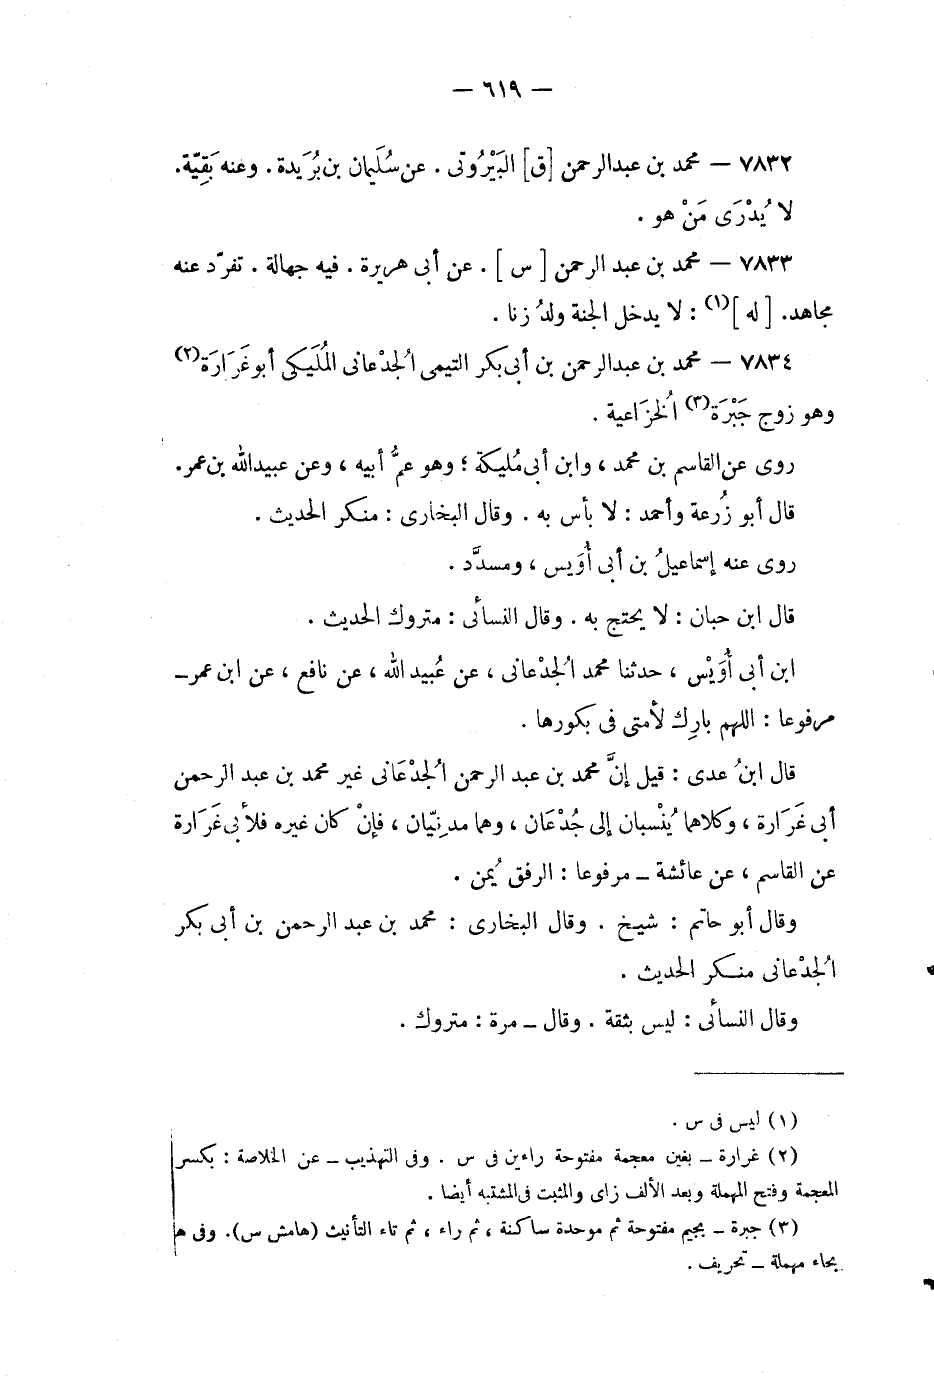 — ٦١٩ —
٧٨٣٢ — محمد بن عبدالرحمن [ق] البَيْرُوتى . عن سُلَيمان بن بُرَيدة . وعنه بَقِيّة.
لا يُدْرَى مَنْ هو .
٧٨٣٣ — محمد بن عبد الرحمن [ س ] . عن أبى هريرة . فيه جهالة . تفرّد عنه
مجاهد. [ له ](١) : لا يدخل الجنة ولدُ زنا .
٧٨٣٤ — محمد بن عبدالرحمن بن أبى بكر التيمى الُجدْعانى المُلَيكى أبو غَرَارة(٢)
وهو زوج جَبْرَة(٣) الُخزَاعية .
روى عن القاسم بن محمد ، وابن أبى مُليكة ؛ وهو عمُّ أبيه ، وعن عبيدالله بن عمر.
قال أبو زُرعة وأحمد : لا بأس به . وقال البخارى : منكر الحديث .
روى عنه إسماعيلُ بن أبى أُوَيس ، ومسدَّد .
قال ابن حبان : لا يحتج به . وقال النسأئى : متروك الحديث .
ابن أبى أُوَيْس ، حدثنا محمد الُجدْعانى ، عن عُبيد الله ، عن نافع ، عن ابن عمر ــ
مرفوعا : اللهم بارِك لأمتى فى بكورها .
قال ابنُ عدى : قيل إنَّ محمد بن عبد الرحمن الُجدْعَانى غير محمد بن عبد الرحمن
أبى غَرَارة ، وكلاهما يُنْسبان إلى جُدْعَان ، وهما مدنِيّان ، فإنْ كان غيره فلأبى غَرَارة
عن القاسم ، عن عائشة ــ مرفوعا : الرفق يُمن .
وقال أبو حاتم : شيخ . وقال البخارى : محمد بن عبد الرحمن بن أبى بكر
الُجدْعانى منكر الحديث .
وقال النسأئى : ليس بثقة . وقال ــ مرة : متروك .
(١) ليس فى س .
(٢) غرارة ــ بغين معجمة مفتوحة راءين فى س . وفى التهذيب ــ عن الخلاصة : بكسر
المعجمة وفتح المهملة وبعد الألف زاى والمثبت فى المشتبه أيضا .
(٣) جبرة ــ بجيم مفتوحة ثم موحدة ساكنة ، ثم راء ، ثم تاء التأنيث (هامش س). وفى هـ
بحاء مهملة ــ تحريف .